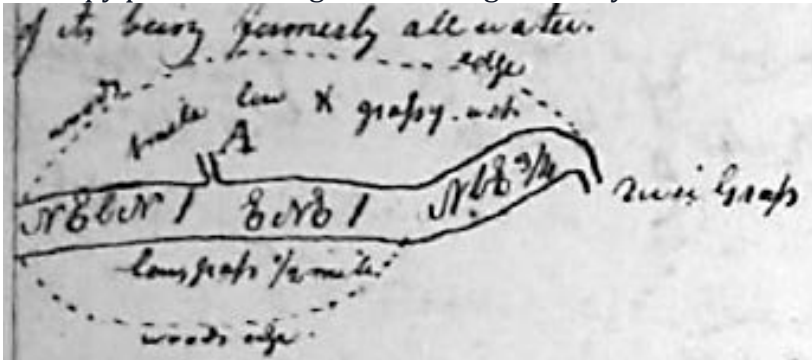 of its being formerly all water.
edge
woods
mile low & grassy
A
NEbN 1 ENE 1 NbE 3/4
Grass
long grass 1/2 mile
woods edge